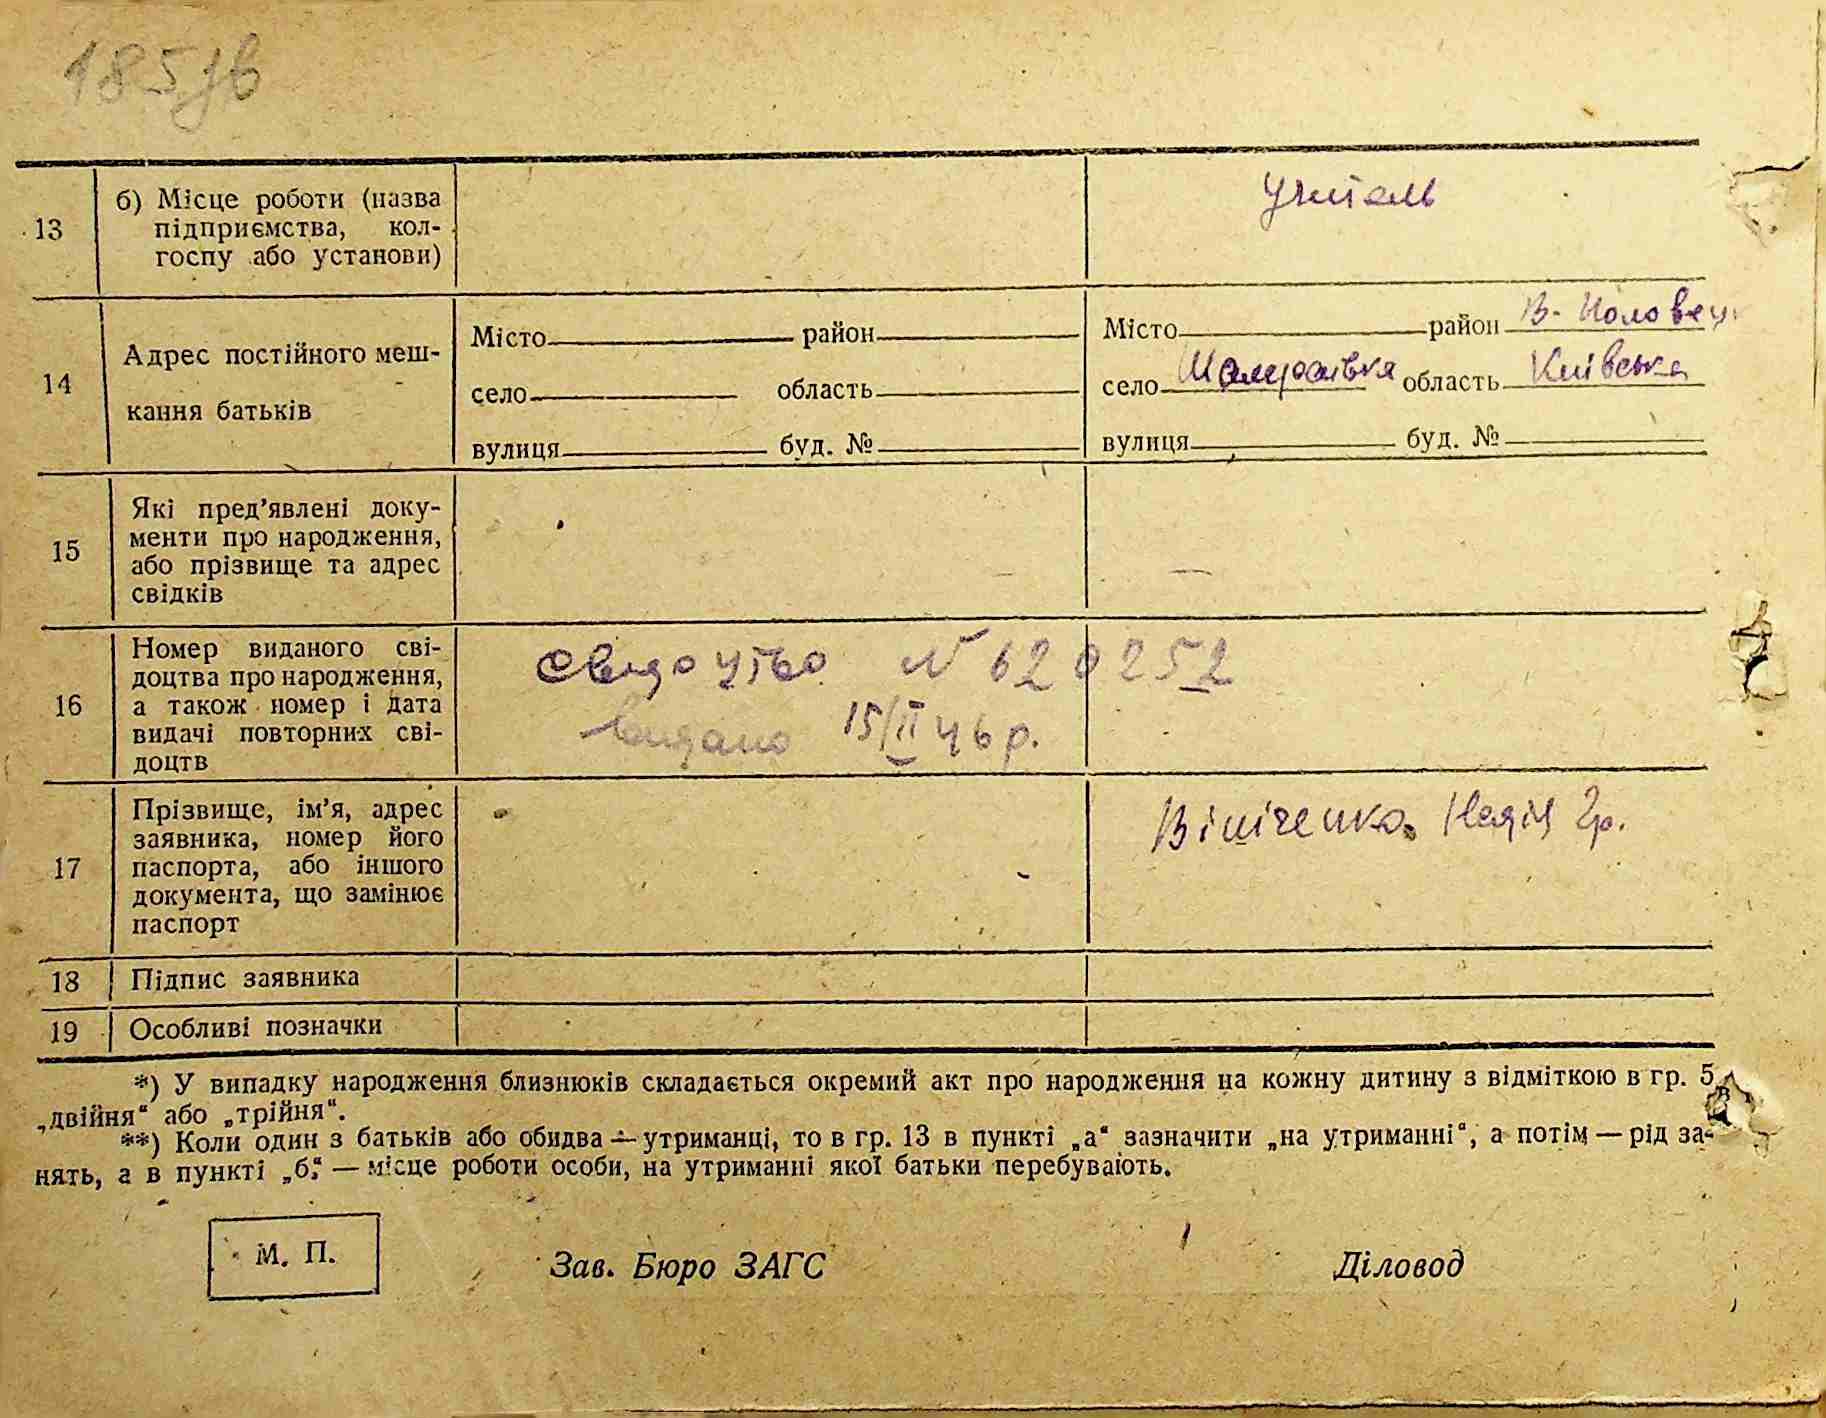 185зв
13
б) Місце роботи (назва
підприємства, кол-
госпу або установи)
учитель
14
Адрес постійного меш-
кання батьків
Місто район
село область
вулиця буд. №
Місто район В-Половец
село область Київська
вулиця буд. №
15
Які пред'явлені доку-
менти про народження,
або прізвище та адрес
свідків
16
Номер виданого сві-
доцтва про народження,
а також номер і дата
видачі повторних сві-
доцтв
свідоцтво N 620252
видано 15/II 46 р.
17
Прізвище, ім'я, адрес
заявника, номер його
паспорта, або іншого
документа, що замінює
паспорт
Вініченко Гр.
18
Підпис заявника
19
Особливі позначки
*) У випадку народження близнюків складається окремий акт про народження на кожну дитину з відміткою в гр. 5
„двійня“ або „трійня“.
**) Коли один з батьків або обидва — утриманці, то в гр. 13 в пункті „а“ зазначити „на утриманні“, а потім — рід за-
нять, а в пункті „б“ — місце роботи особи, на утриманні якої батьки перебувають.
М. П.
Зав. Бюро ЗАГС
Діловод